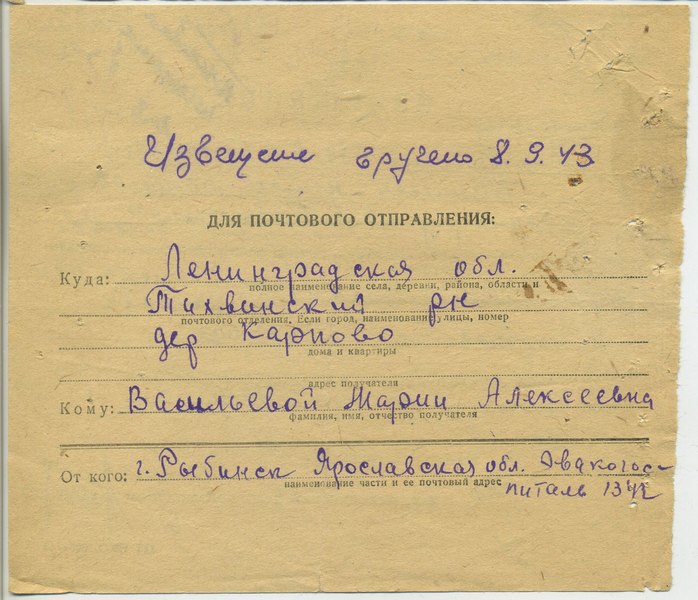 Извещение вручено 8.9.43
ДЛЯ ПОЧТОВОГО ОТПРАВЛЕНИЯ:
Куда: Ленинградская обл.
полное наименование села, деревни, района, области и
Тихвинский рн
почтового отделения. Если город, наименование улицы, номер
дер Карпово
дома и квартиры
адрес получателя
Кому: Васильевой Марии Алексеевна
фамилия, имя, отчество получателя
От кого: г. Рыбинск Ярославская обл. Эвакогос-
наименование части и ее почтовый адрес
питаль